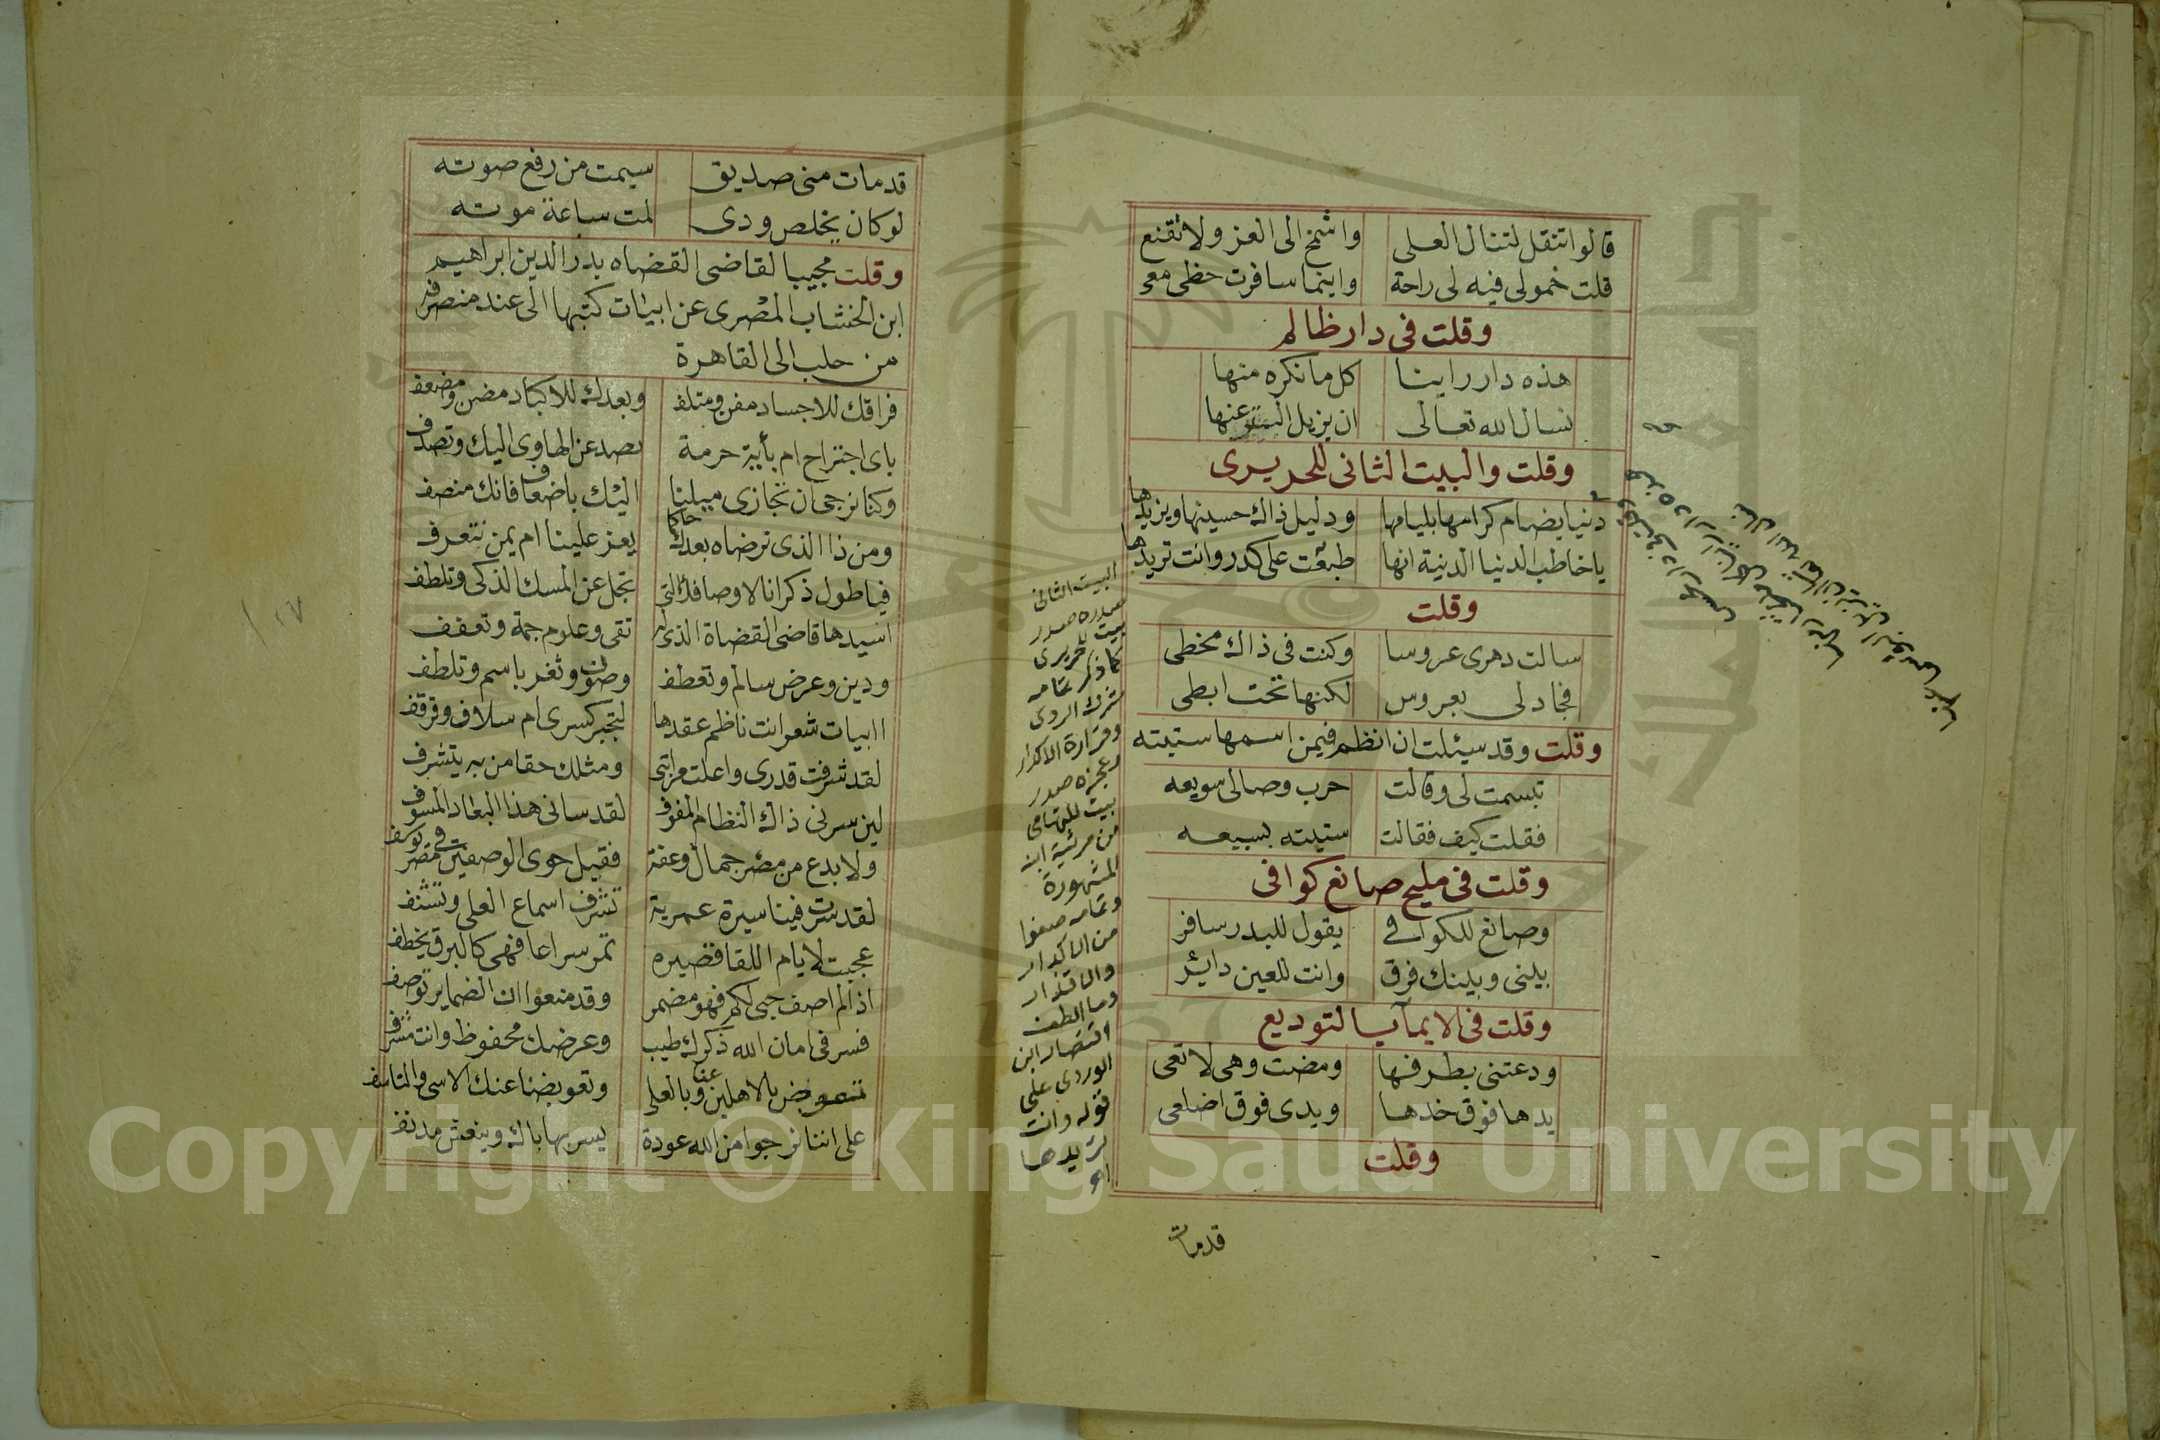 قالوا تنقل لتنال العلى واشمخ الى العز ولا تقنع
قلت خمولى فيه لى راحة واينما سافرت حظى معى
وقلت فى دار ظالم
هذه دار راينا كل ما نكره منها
نسال الله تعالى ان يزيل عنها
وقلت والبيت الثانى للحريرى
دنيا يضام كرامها بليامها ودليل ذاك حسينها ويزيدها
يا خاطب الدنيا الدنية انها طبعت على كدر وانت تريدها
وقلت
سالت دهرى عروسا وكنت فى ذاك مخطى
فجاد لى بعروس لكنها تحت ابطى
وقلت وقد سيئلت ان انظم فيمن اسمها ستيته
تبسمت لى وقالت حرب وصالى سويعه
فقلت كيف فقالت ستيته بسبيعه
وقلت فى مليح صانع كوافى
وصانع للكوافى يقول للبدر سافر
بينى وبينك فرق وانت للعين داير
وقلت فى الايماء بالتوديع
ودعتنى بطرفها ومضت وهى لا تعى
يدها فوق خدها ويدى فوق اضلعى
وقلت
قدمات
البيت الثانى
صدره صدر
بيت للحريرى
كما ذكر تمامه
شرك الردى
وقرارة الاكدار
وعجزه صدر
بيت للتهامى
من مرثية ابنه
المشهورة
وتمامه صفوا
من الاكدار
والاقذار
وما الطف
اقتصار ابن
الوردى على
قوله وانت
تريدها
قدمات منى صديق سيمت من رفع صوته
لو كان يخلص ودى لمت ساعة موته
وقلت مجيبا لقاضى القضاه بدر الدين ابراهيم
ابن الخشاب المصرى عن ابيات كتبها الى عند منصرفه
من حلب الى القاهرة
فراقك للاجساد مفن ومتلف وبعدك للاكباد مضن ومضعف
باى اجتراح ام بأية حرمة تصد عن الهاوى اليك وتصدف
وكنا نرجى ان تجازى ميلنا اليك باضعاف فانك منصف
ومن ذا الذى نرضاه بعدك حاكما يعز علينا ام بمن نتعرف
فيا طول ذكرانا لاوصافك التى تجل عن المسك الذكى وتلطف
اسيدها قاضى القضاة الذى له تقى وعلوم جمة وتعفف
ودين وعرض سالم وتعطف وصون وثغر باسم وتلطف
اابيات شعر انت ناظم عقدها لتجبر كسرى ام سلاف وقرقف
لقد شرفت قدرى واعلت مراتبى ومثلك حقا من به يتشرف
لين سرنى ذاك النظام المفوف لقد سانى هذا البعاد المسوف
ولا بدع من مصر جمال وعفة فقبل حوى الوصفين فى مصر يوسف
لقد سرت فينا سيرة عمرية تشرف اسماع العلى وتشنف
عجبت لايام اللقا قصيره تمر سراعا فهى كالبرق يخطف
اذا لم اصف حبى لكم فهو مضمر وقد منعوا ان الضماير توصف
فسر فى امان الله ذكرك طيب وعرضك محفوظ وانت مشرف
تعوض بالاهلين عنا وبالعلى وتعويضنا عنك الاسى والتاسف
على اننا نرجوا من الله عودة يسر بها باك وينعش مدنف
١٢٧